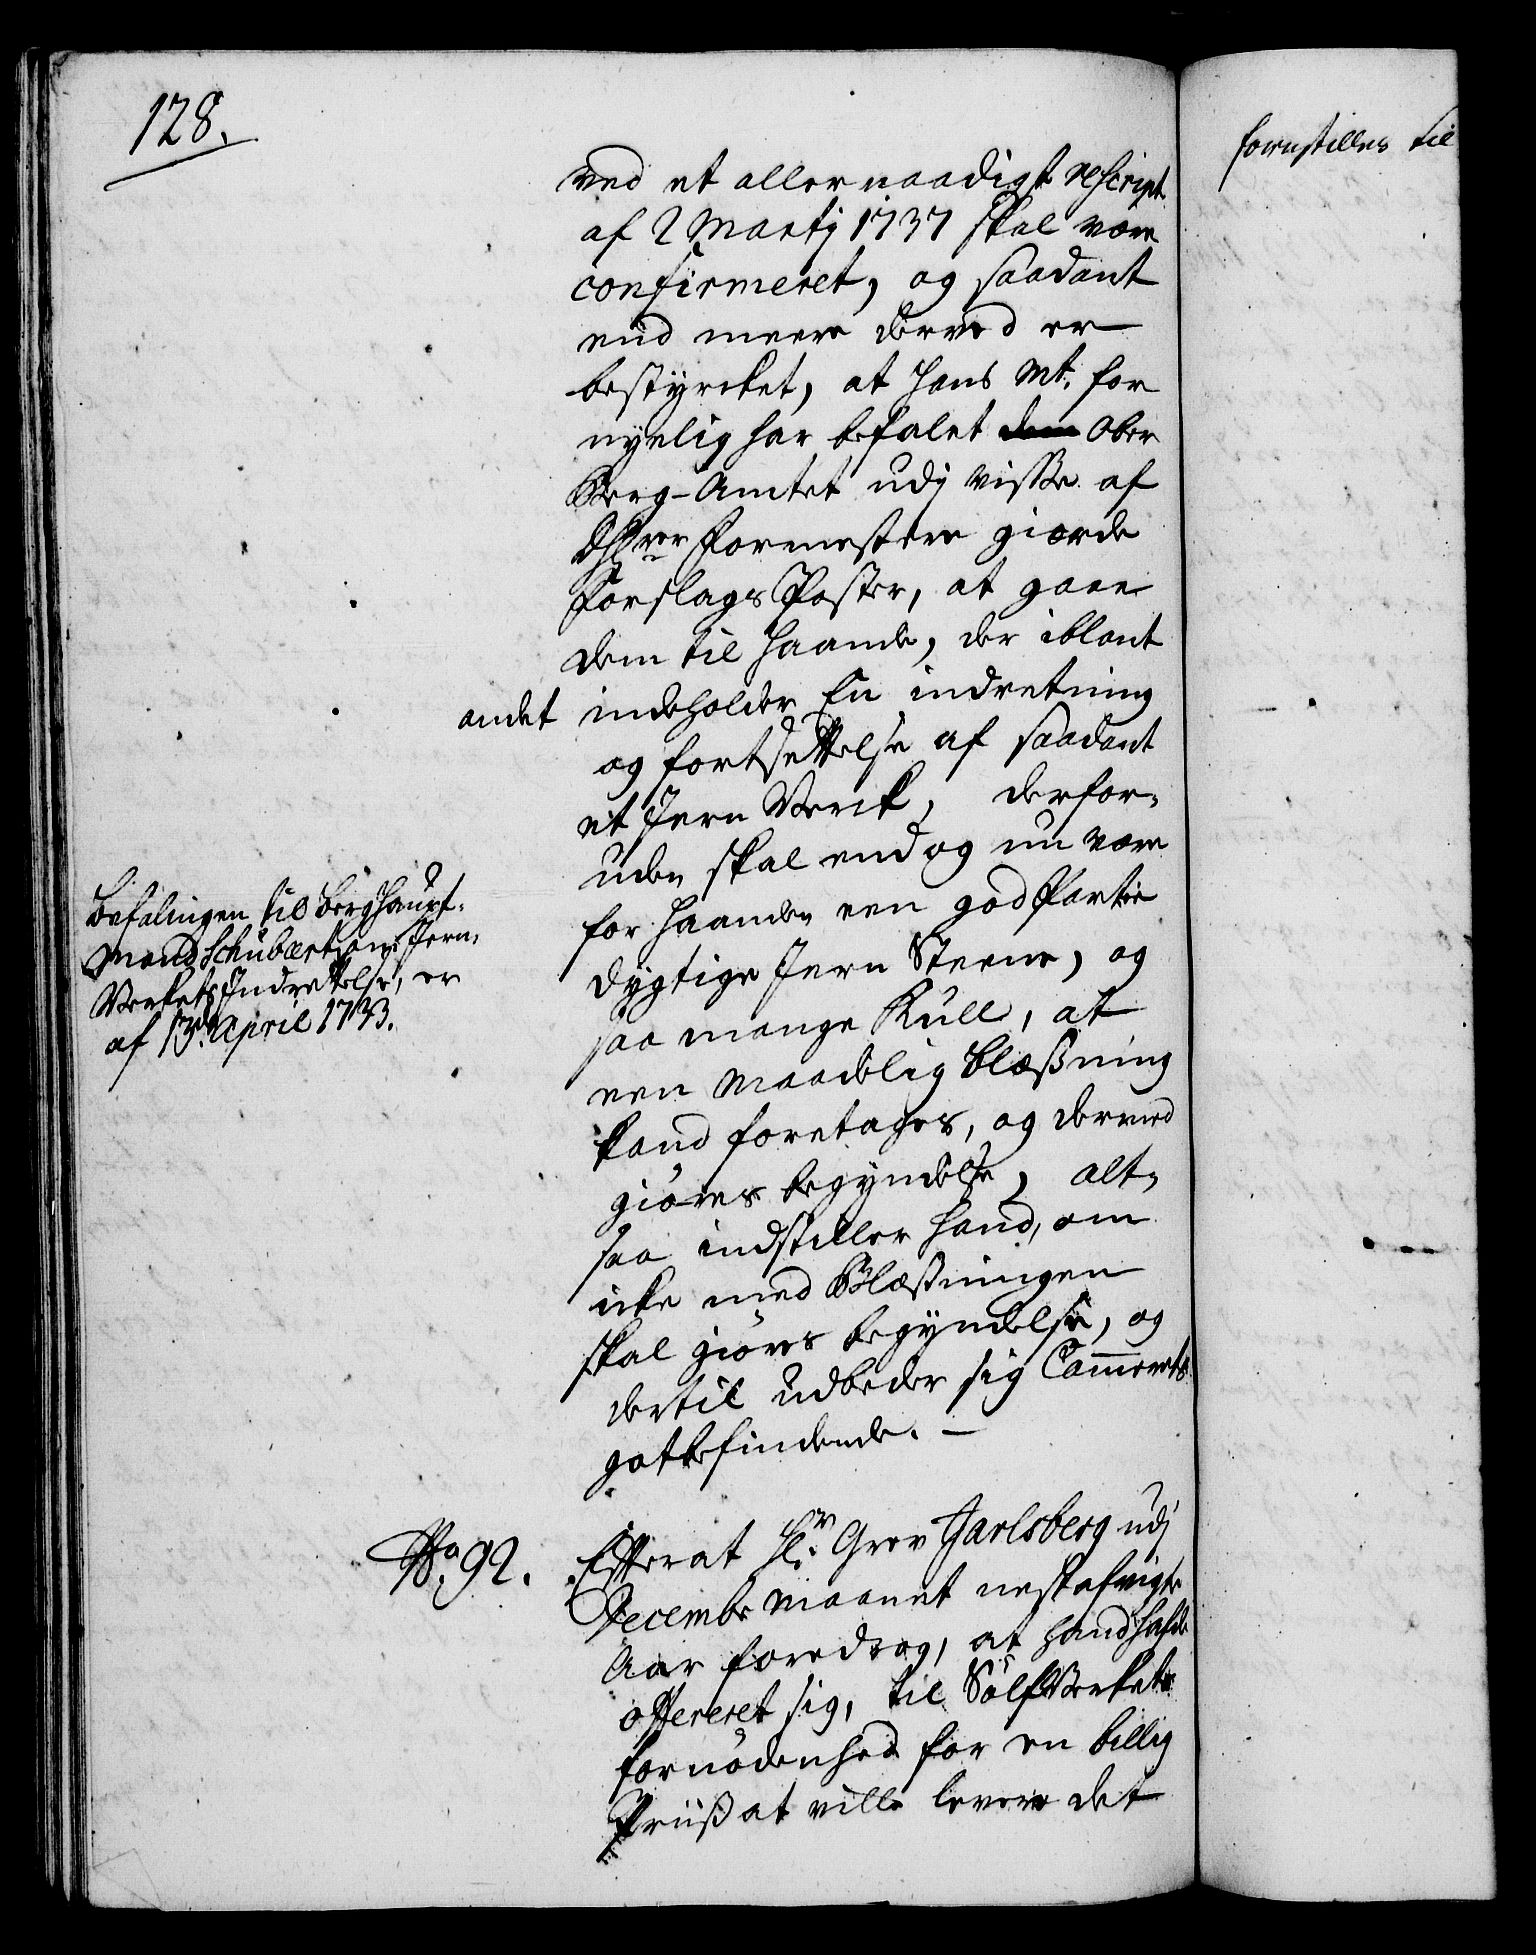 128.
ved et allernaadigst rescript
af 2 Martij 1737 skal være
confirmeret, og saadant
end meere derved er
bestyrcket, at Hans Mt. for
nyelig har befalet dem Ober
Berg-Amtet udj visse af
Forvesterne giorde
Forslags Poster, at gaae
dem til Haande, der iblant
andet indeholder En indretning
og fortsettelse af saadant
et Jern Verck, derfor-
uden skal end og nu være
for Haanden een god Partie
dygtige Jern Steene, og
saa mange Kull, at
een maadelig blæsning
kand foretages, og dermed
giøres begyndelse, alt-
saa indstiller hand, om
icke med Blæsningen
skal giøres begyndelse, og
dertil udbeder sig Cammerets
gotbefindende. —
Befalingen til Berghaupt-
mand Schubart om Jern-
Verkets Indrettelse, er
af 13. April 1733.
No. 92. Efterat Hr. Grev Jarlsberg udj
Decembr Maanet nestafvigte
Aar foredrog, at hand hafde
offereret sig, til Sølf Verkets
fornødenhed for en billig
Priis at ville levere det
fornstilles til